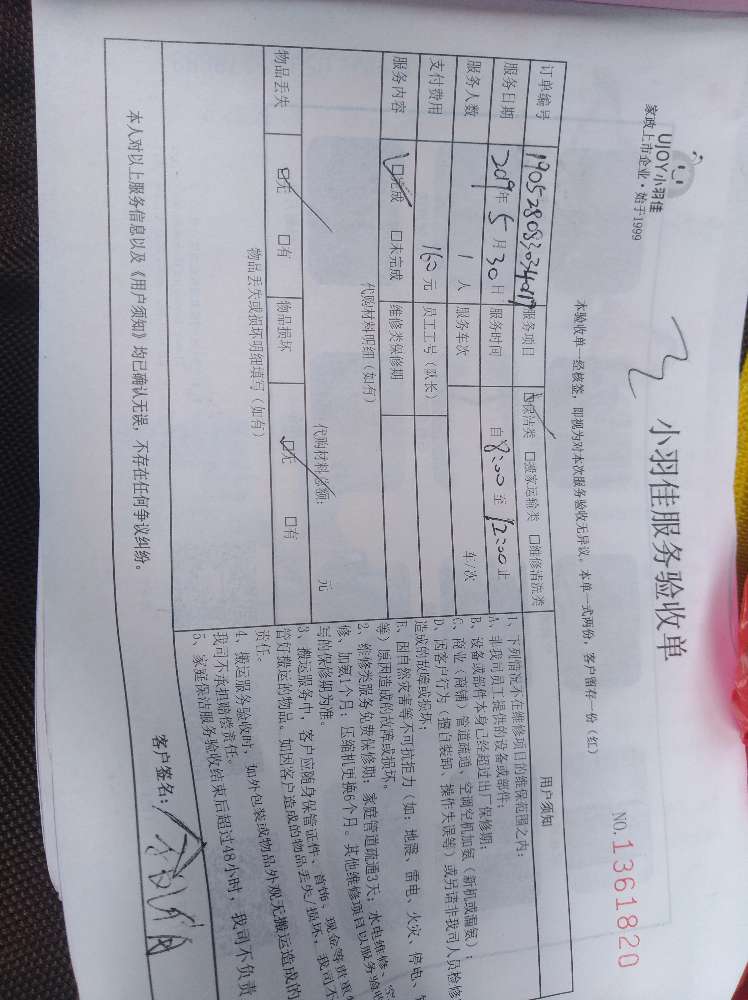 UJOY小羽佳
家政上市企业·始于1999
小羽佳服务验收单
NO.1361820
本验收单一经核签，即视为对本次服务验收无异议。本单一式两份；客户留存一份（红）
订单编号 服务项目 ☑保洁类 □搬家运输类 □维修清洗类
服务日期 2019年 5月 30日 服务时间 自 8:00 至 12:00 止
服务人数 1 人 服务车次 车/次
支付费用 160 元 员工工号（队长）
服务内容 ☑完成 □未完成 维修类保修期
代购材料明细（如有）
代购材料总额： 元
物品丢失 ☑无 □有 物品损坏 ☑无 □有
物品丢失或损坏明细填写（如有）
用户须知
1、下列情况不在维修项目的维保范围之内：
A、非我司员工提供的设备或部件；
B、设备或部件本身已经超过出厂保修期；
C、商业（商铺）管道疏通、空调空机加氨（新机或漏氨）；
D、因客户行为（擅自装卸、操作失误等）或另请非我司人员检修
造成的故障或损坏；
E、因自然灾害等不可抗拒力（如：地震、雷电、火灾、停电、
等）原因造成的故障或损坏。
2、维修类服务免费保修期：家庭管道疏通3天；水电维修、
修、加氨1个月；压缩机更换6个月。其他维修项目以服务验收
写的保修期为准。
3、搬运服务中，客户应随身保管证件、首饰、现金等贵重
管好搬运的物品。如因客户造成的物品丢失/损坏，我司不
责任。
4、搬运服务验收时，如外包装或物品外观无搬运造成的
我司不承担赔偿责任。
5、家庭保洁服务验收结束后超过48小时，我司不负责
本人对以上服务信息以及《用户须知》均已确认无误，不存在任何争议纠纷。
客户签名：